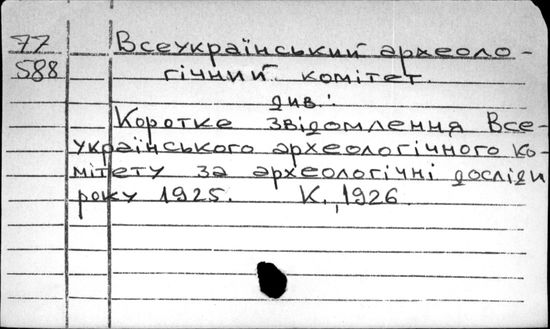 77 Всеукраїнський археоло-
588 гічний комітет.
див.:
Коротке звідомлення Все-
українського археологічного ко-
мітету за археологічні досліди
року 1925. К., 1926.